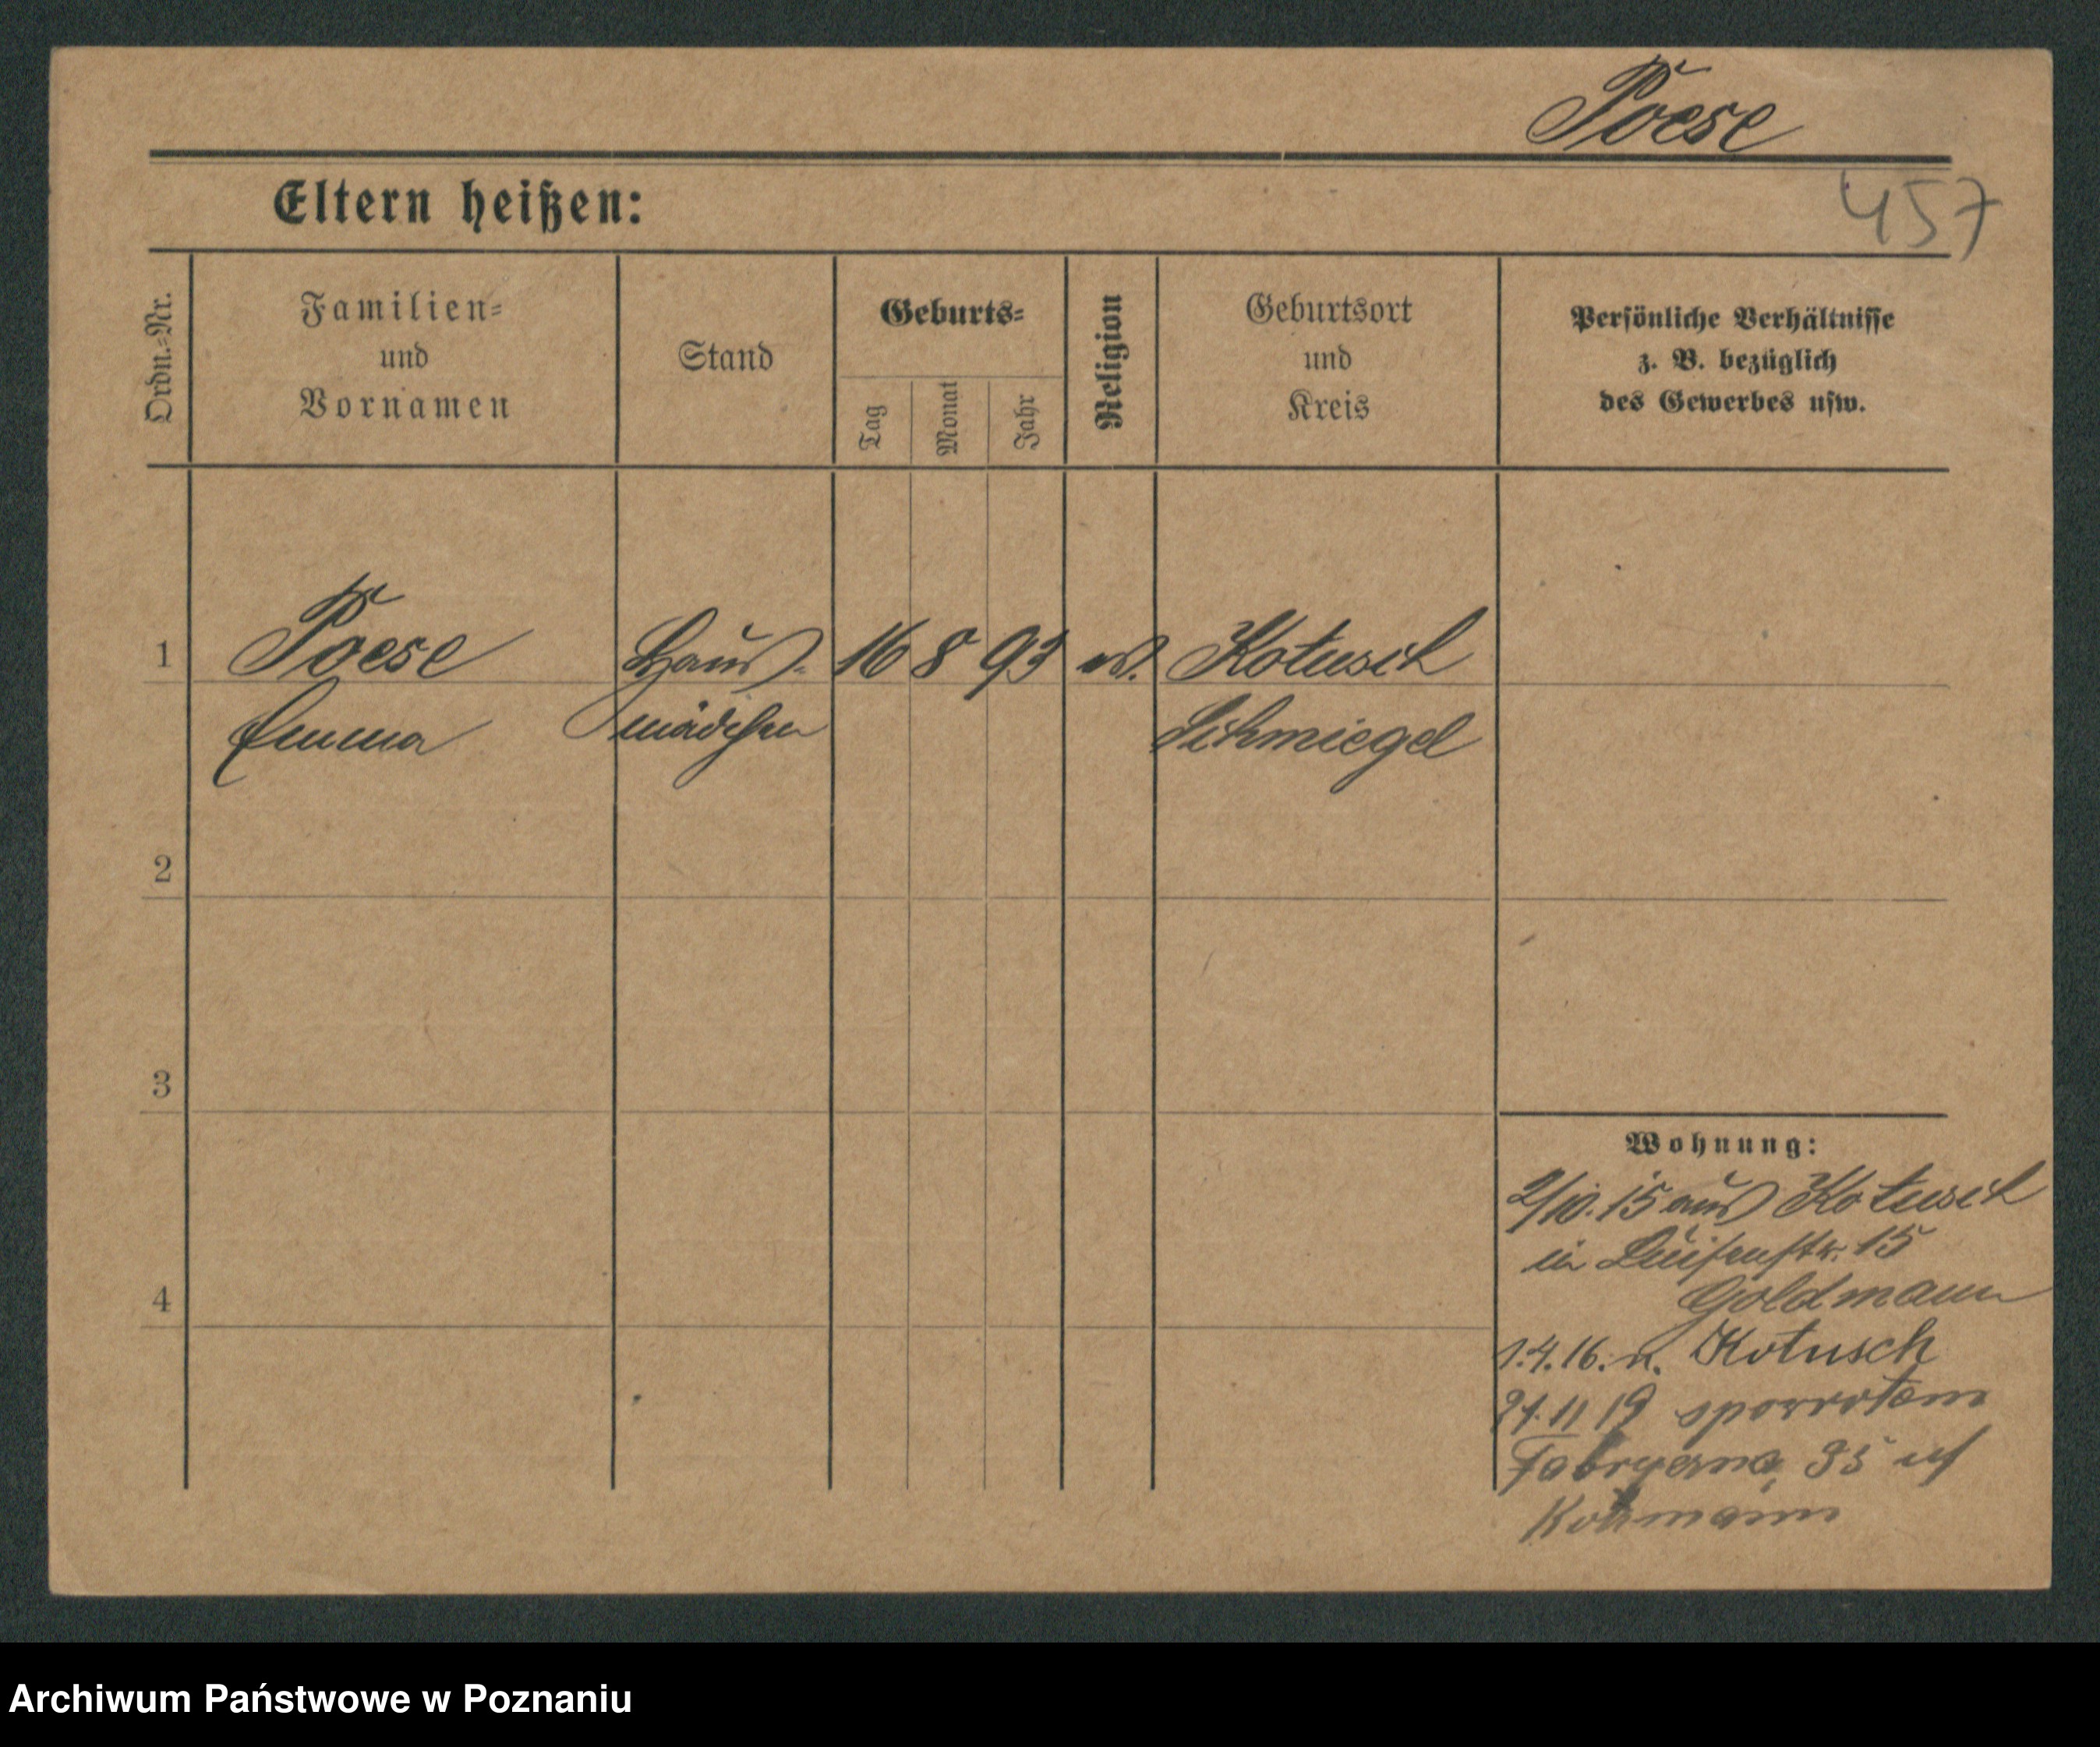 Poese
457
Eltern heißen:
Ordn.=Nr.
Familien=
und
Vornamen
Stand
Geburts=
Tag
Monat
Jahr
Religion
Geburtsort
und
Kreis
Persönliche Verhältnisse
z. B. bezüglich
des Gewerbes usw.
1
Poese
Haus-
16 8 93
ev.
Kotusch
Emma
mädchen
Schmiegel
2
3
4
Wohnung:
2/10.15 aus Kotusch
in Luisenstr. 15
Goldmann
1.4.16. n. Kotusch
11 19 spowrotem
35
Archiwum Państwowe w Poznaniu